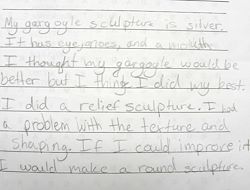 My gargoyle sculpture is silver.
It has eye, and a mouth
I thought my gargoyle would be
better but I thing I did my best.
I did a relief sculpture. I had
a problem with the texture and
shaping. If I could improve it
I would make a round sculpture.